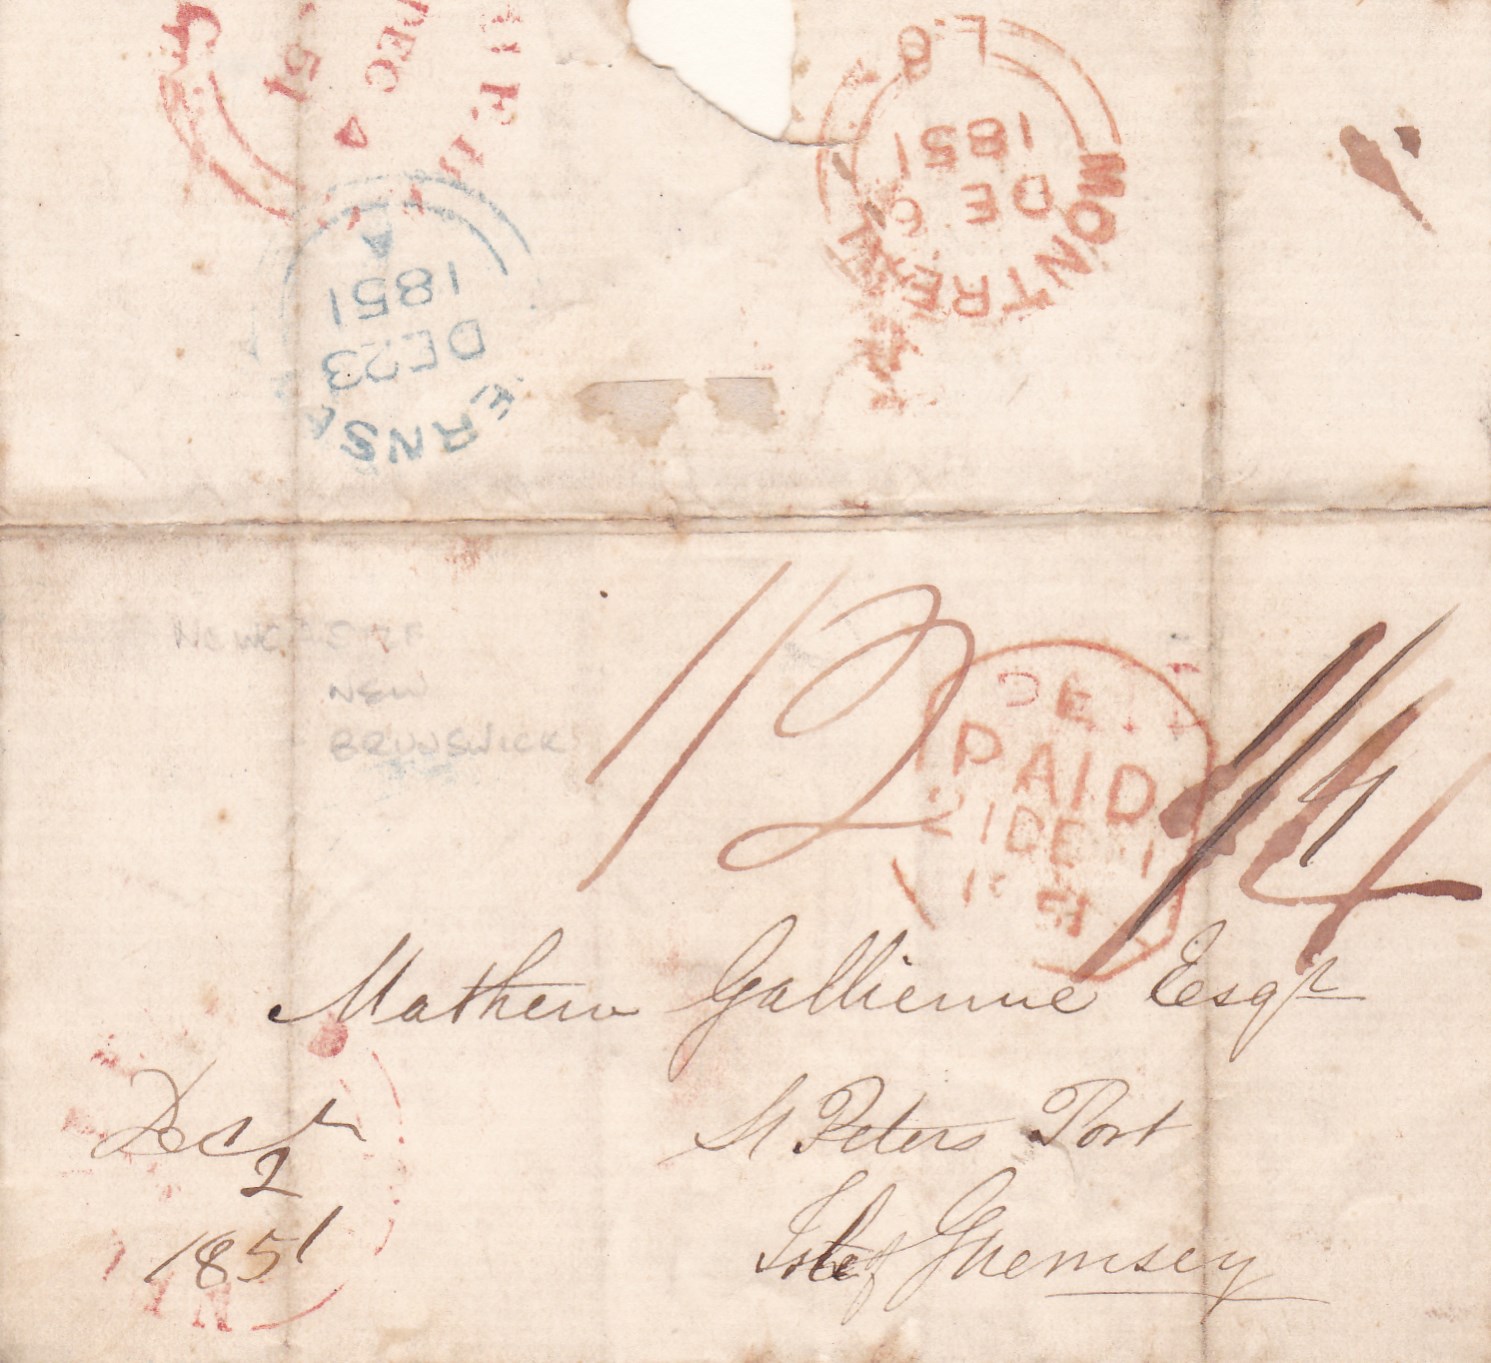 DEC 4
51
L.C
MONTREAL
DE 6
1851
A
1851
DE 23
ERNS
NEWCASTLE
NEW
BRUNSWICK
1/2
1/4
PAID
21 DE
51
Mathew Gallienne Esqr
St Peters Port
Isle of Guernsey
Decr
2
1851